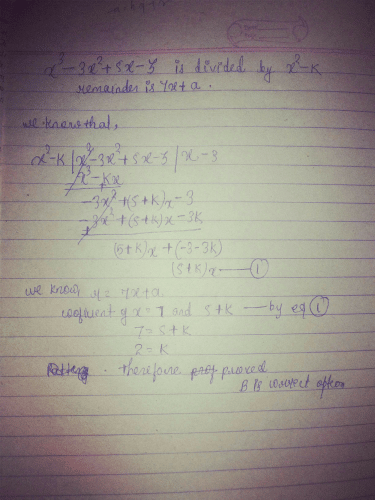 x³ - 3x² + 5x - 3 is divided by x² - K
remainder is 7x + a.
we know that,
x² - K | x³ - 3x² + 5x - 3 | x - 3
x³ - Kx
- 3x² + (5 + K)x - 3
- 3x² + (5 + K)x - 3K
+
(5 + K)x + (-3 - 3K)
(5 + K)x — ①
we know, r = 7x + a.
coefficient of x = 7 and 5 + K — by eq ①
7 = 5 + K
2 = K
therefore proved
B is correct option